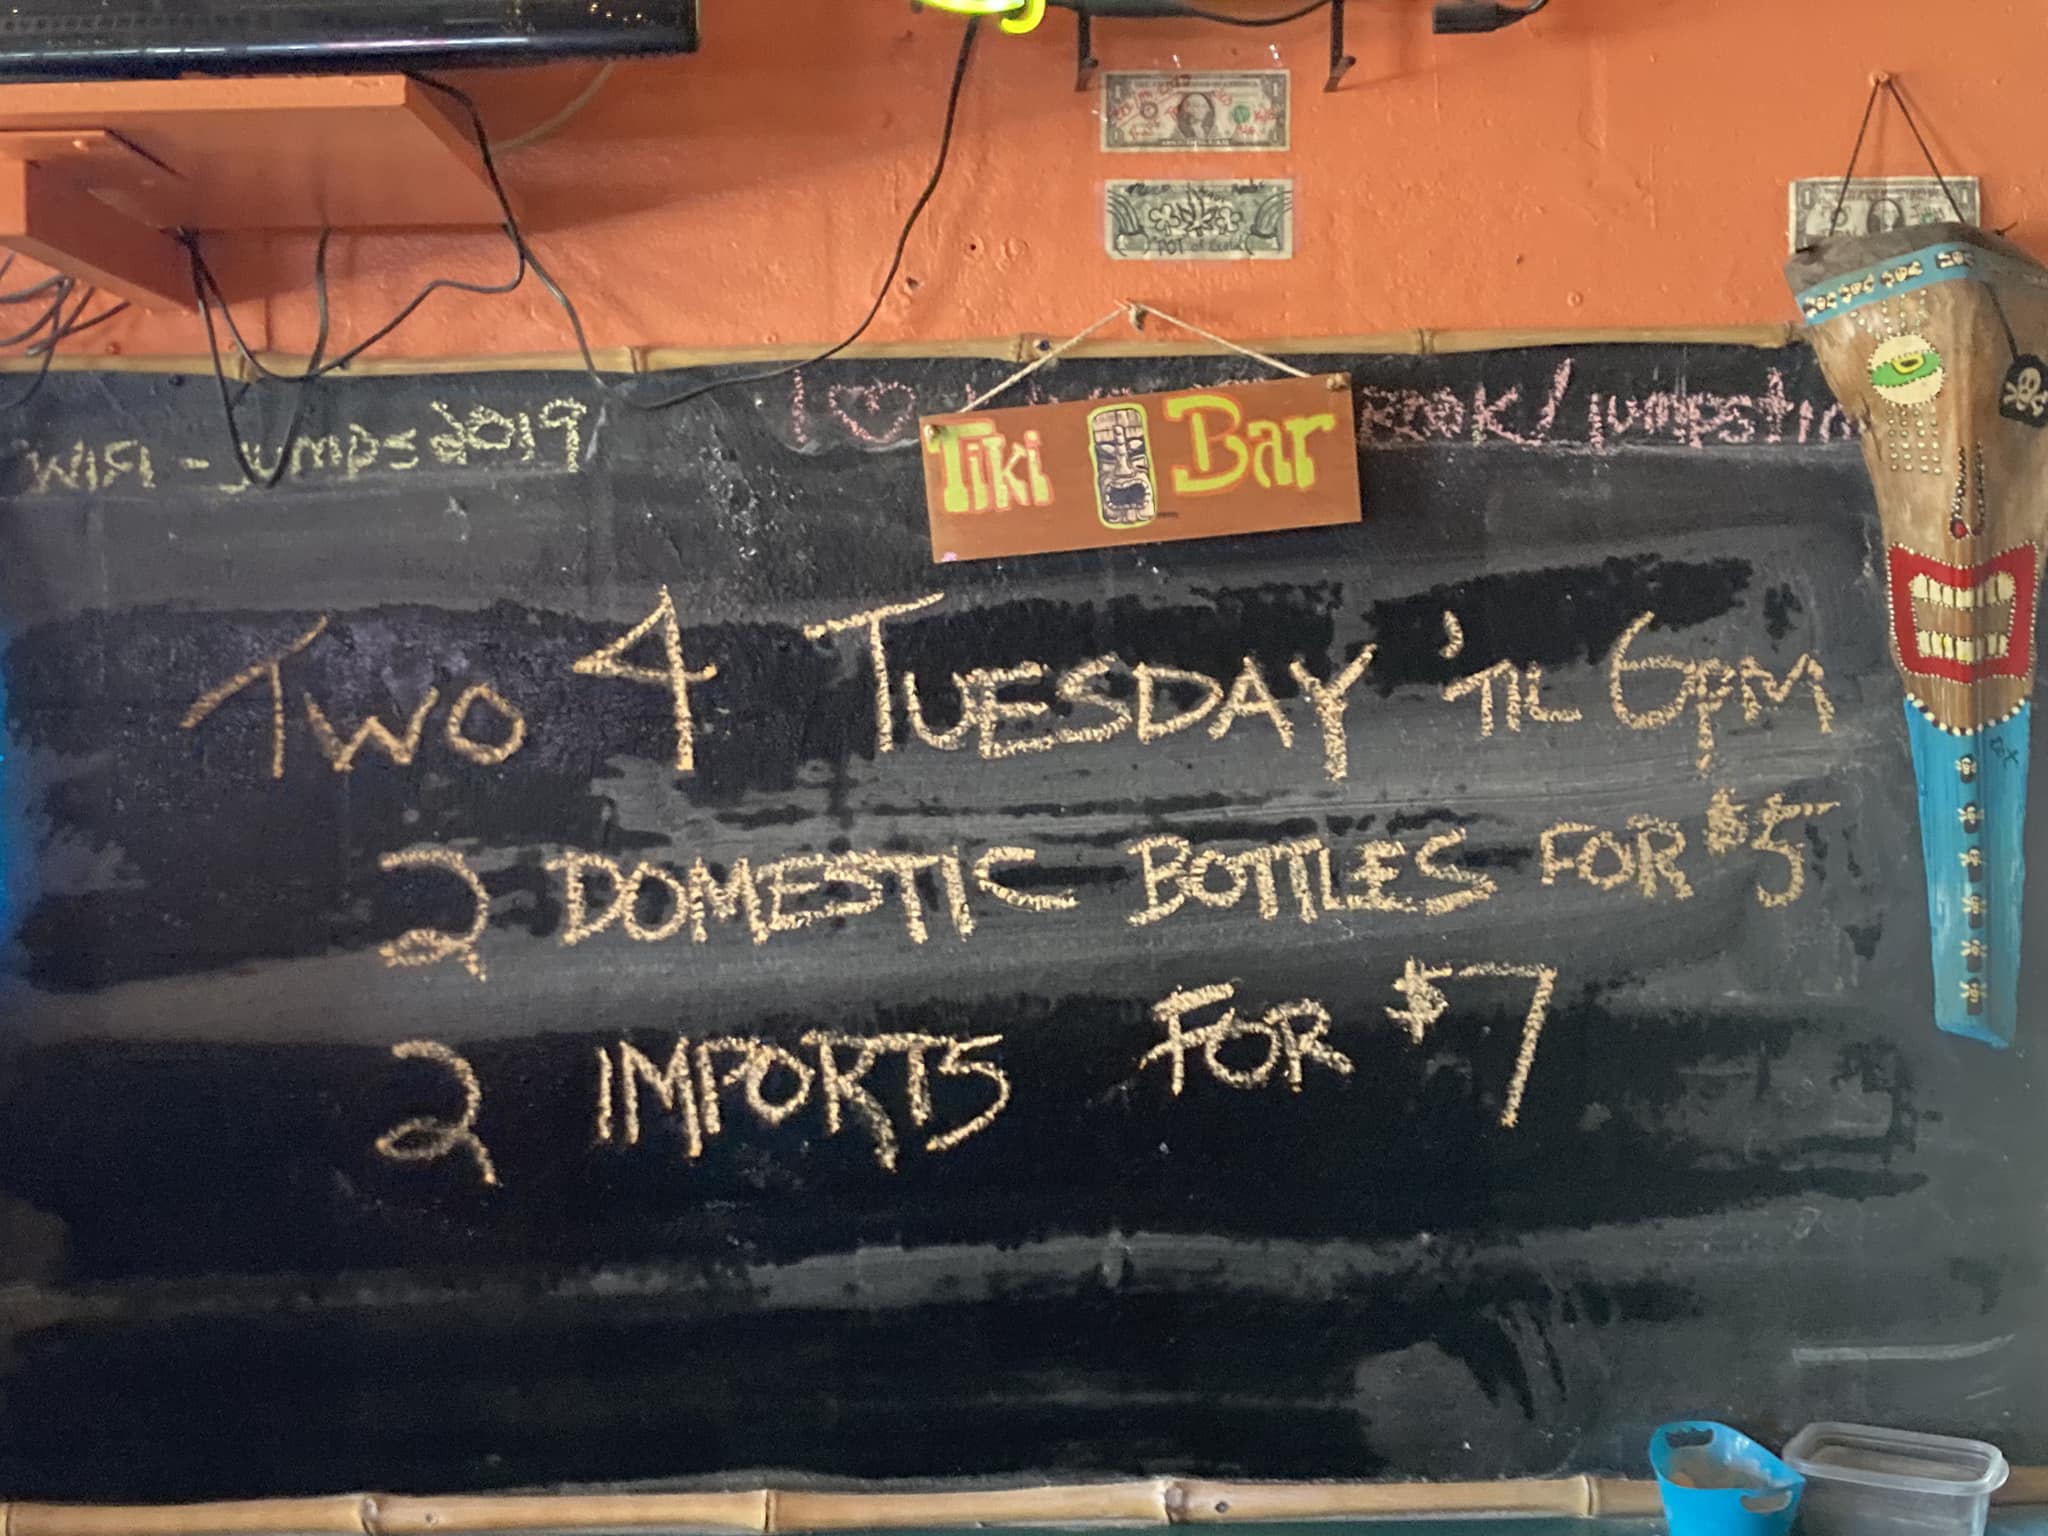 POT of Gold
WIFI - Jumps2019
Tiki Bar
TWO 4 TUESDAY 'TIL 6PM
2 DOMESTIC BOTTLES FOR $5
2 IMPORTS FOR $7